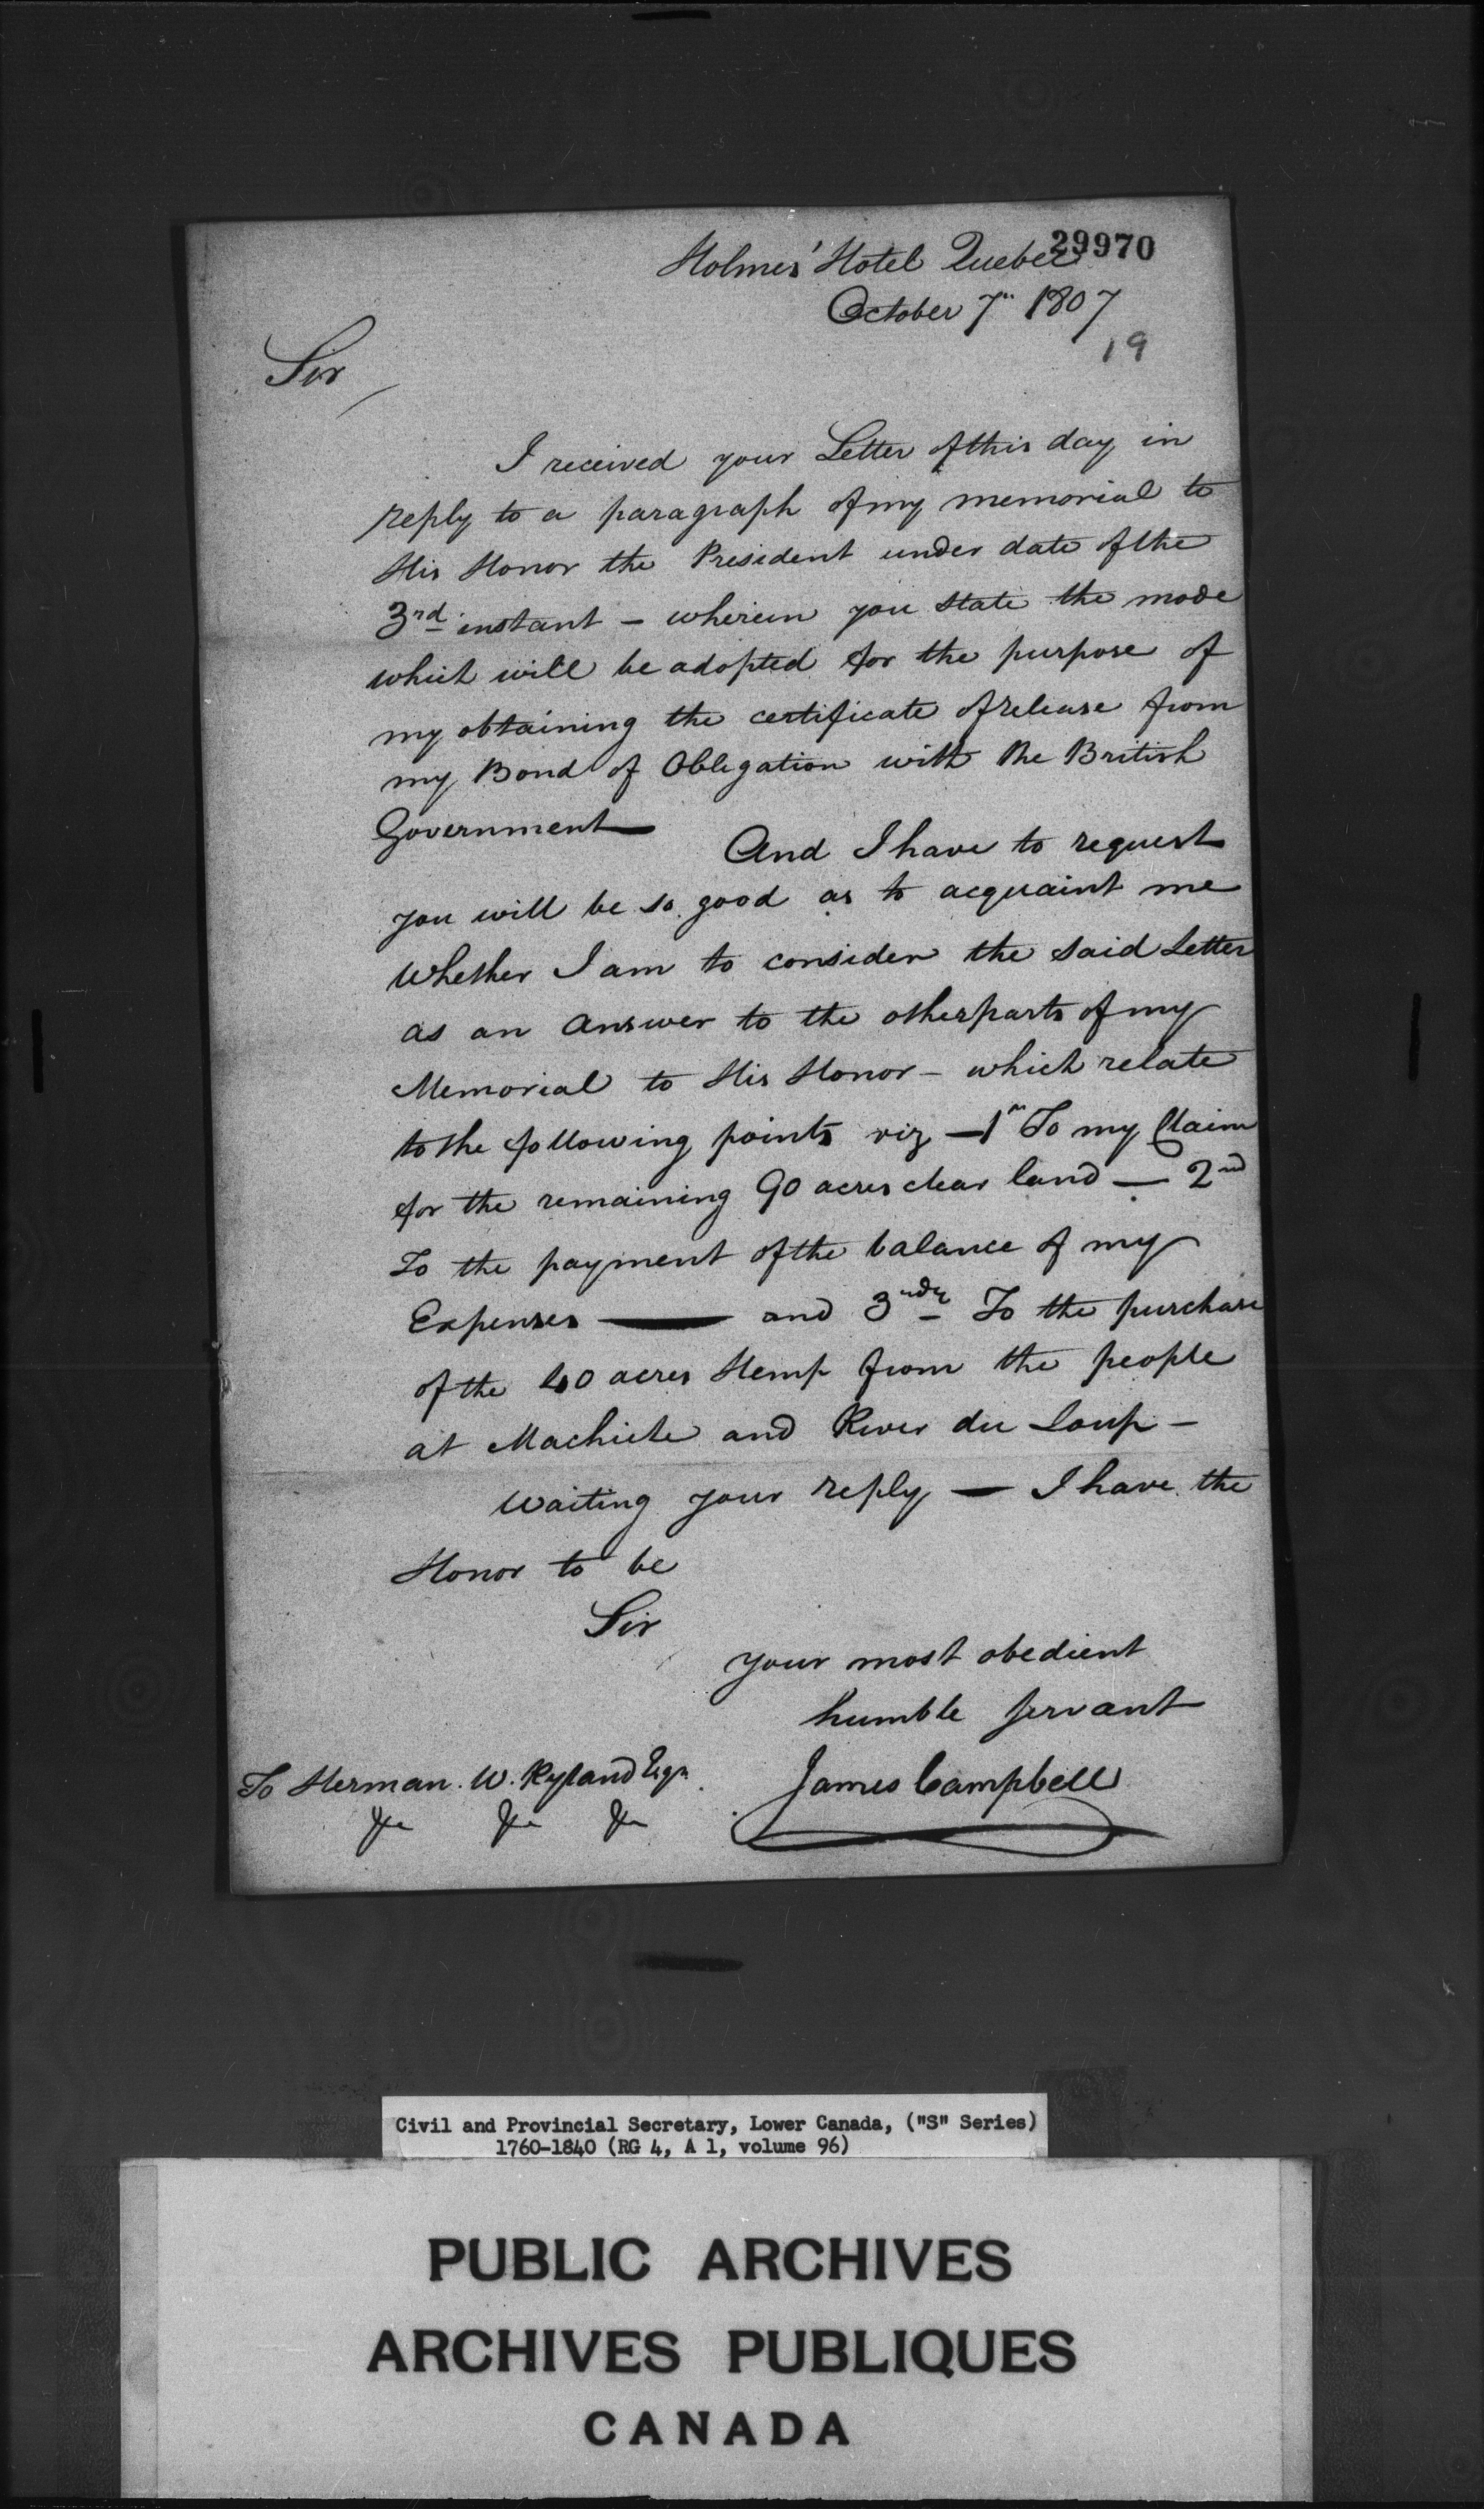 29970
Holmes' Hotel Quebec
October 7th 1807
19
Sir
I received your Letter of this day in
reply to a paragraph of my memorial to
His Honor the President under date of the
3rd instant - wherein you state the mode
which will be adopted for the purpose of
my obtaining the certificate of release from
my Bond of Obligation with the British
Government — And I have to request
you will be so good as to acquaint me
whether I am to consider the said Letter
as an answer to the other parts of my
Memorial to His Honor - which relate
to the following points viz — 1st To my Claim
for the remaining 90 acres clear land — 2nd
To the payment of the balance of my
Expenses — and 3rdly To the purchase
of the 40 acres Hemp from the people
at Machiche and River du Loup -
Waiting your reply — I have the
Honor to be
Sir
your most obedient
humble servant
James Campbell
To Herman. W. Ryland Esqr.
&c &c &c
Civil and Provincial Secretary, Lower Canada, ("S" Series)
1760-1840 (RG 4, A 1, volume 96)
PUBLIC ARCHIVES
ARCHIVES PUBLIQUES
CANADA